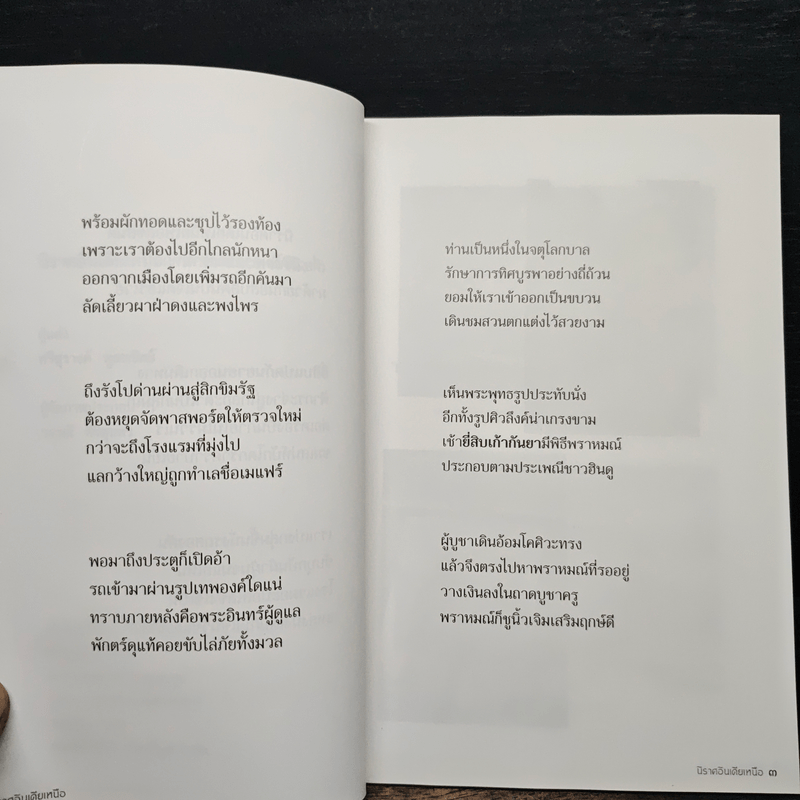 พร้อมผักทอดและซุปไว้รองท้อง
เพราะเราต้องไปอีกไกลนักหนา
ออกจากเมืองโดยเพิ่มรถอีกคันมา
ลัดเลี้ยวผาฝ่าดงและพงไพร
ถึงรังโปด่านผ่านสู่สิกขิมรัฐ
ต้องหยุดจัดพาสพอร์ตให้ตรวจใหม่
กว่าจะถึงโรงแรมที่มุ่งไป
แลกว้างใหญ่ถูกทำเลชื่อเมแฟร์
พอมาถึงประตูก็เปิดอ้า
รถเข้ามาผ่านรูปเทพองค์ใดแน่
ทราบภายหลังคือพระอินทร์ผู้ดูแล
พักตร์ดุแท้คอยขับไล่ภัยทั้งมวล
อินเดียเหนือ
ท่านเป็นหนึ่งในจตุโลกบาล
รักษาการทิศบูรพาอย่างถี่ถ้วน
ยอมให้เราเข้าออกเป็นขบวน
เดินชมสวนตกแต่งไว้สวยงาม
เห็นพระพุทธรูปประทับนั่ง
อีกทั้งรูปศิวลึงค์น่าเกรงขาม
เช้ายี่สิบเก้ากันยามีพิธีพราหมณ์
ประกอบตามประเพณีชาวฮินดู
ผู้บูชาเดินอ้อมโคศิวะทรง
แล้วจึงตรงไปหาพราหมณ์ที่รออยู่
วางเงินลงในถาดบูชาครู
พราหมณ์ก็ชูนิ้วเจิมเสริมฤกษ์ดี
นิราศอินเดียเหนือ ๓